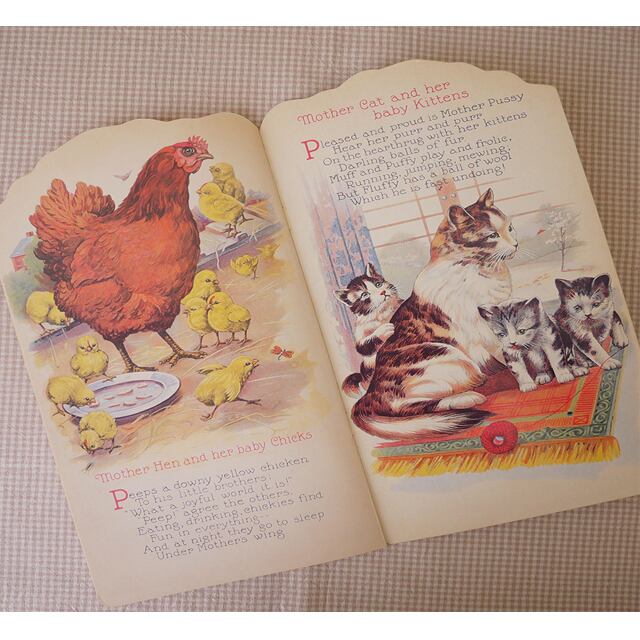 Mother Hen and her baby Chicks
Peeps a downy yellow chicken
To his little brothers,
"What a joyful world it is!"
"Peep," agree the others.
Eating, drinking, chickies find
Fun in everything,
And at night they go to sleep
Under Mothers wing
Mother Cat and her
baby Kittens
Pleased and proud is Mother Pussy
Hear her purr and purr
On the hearthrug with her kittens
Darling balls of fur.
Muff and Puffy play and frolic,
Running, jumping, mewing,
But Fluffy has a ball of wool
Which he is fast undoing!